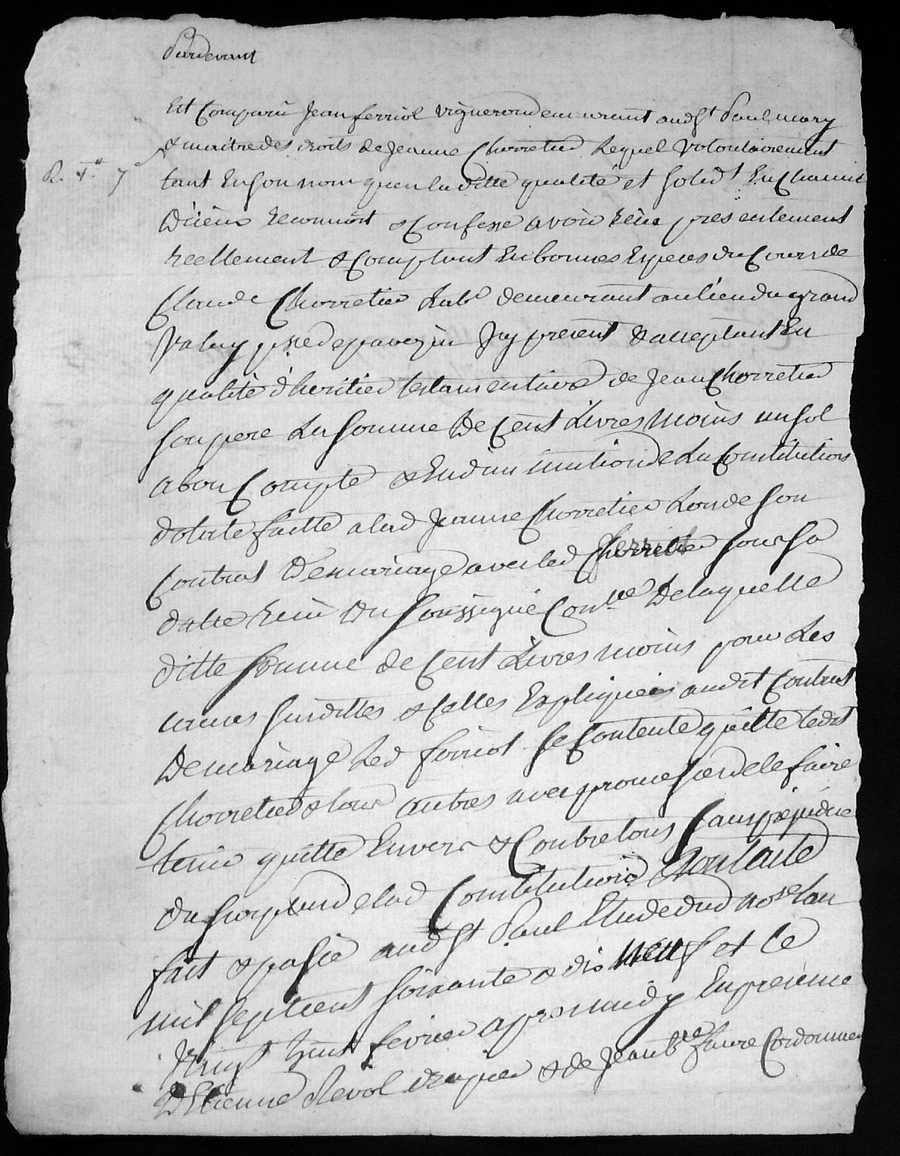 Pardevant
Est Comparu Jean ferriol vigneron demeurant aud St Paul mary
& maitre des droits de Jeanne Chorretier Lequel volontairement
R.
tant En son nom qu'en laditte qualité et solidt En Chacun
D'iceux reconnoit & Confesse avoir reçu presentement
reellement & Comptant En bonnes Especes du Cours de
Claude Chorretier Labr demeurant au lieu du grand
Valuy icy present & acceptant En
qualité d'heritier testamentaire de Jean Chorretier
son pere La somme De Cent Livres moins un sol
a bon Compte & En diminution de La Constitution
dotale faitte a lad Jeanne Chorretier Lors de son
Contrat De mariage avec led ferriol sous sa
datte reçu Du soussigné De laquelle
ditte somme de Cent Livres moins pour Les
causes susdittes & Celles Expliquées audit Contrat
De mariage Led ferriol se Contente quitte ledit
Chorretier & tous autres avec promesse de le faire
tenir quitte Envers & Contre tous sans préjudice
du surplus de lad Constitution Dont acte
fait & passé aud St Paul Etude dud nore L'an
mil sept Cent soixante & dix neuf et Le
vingt huit fevrier apres midy En presence
D'Etienne Revol & de Jean Bte faure Cordonnier